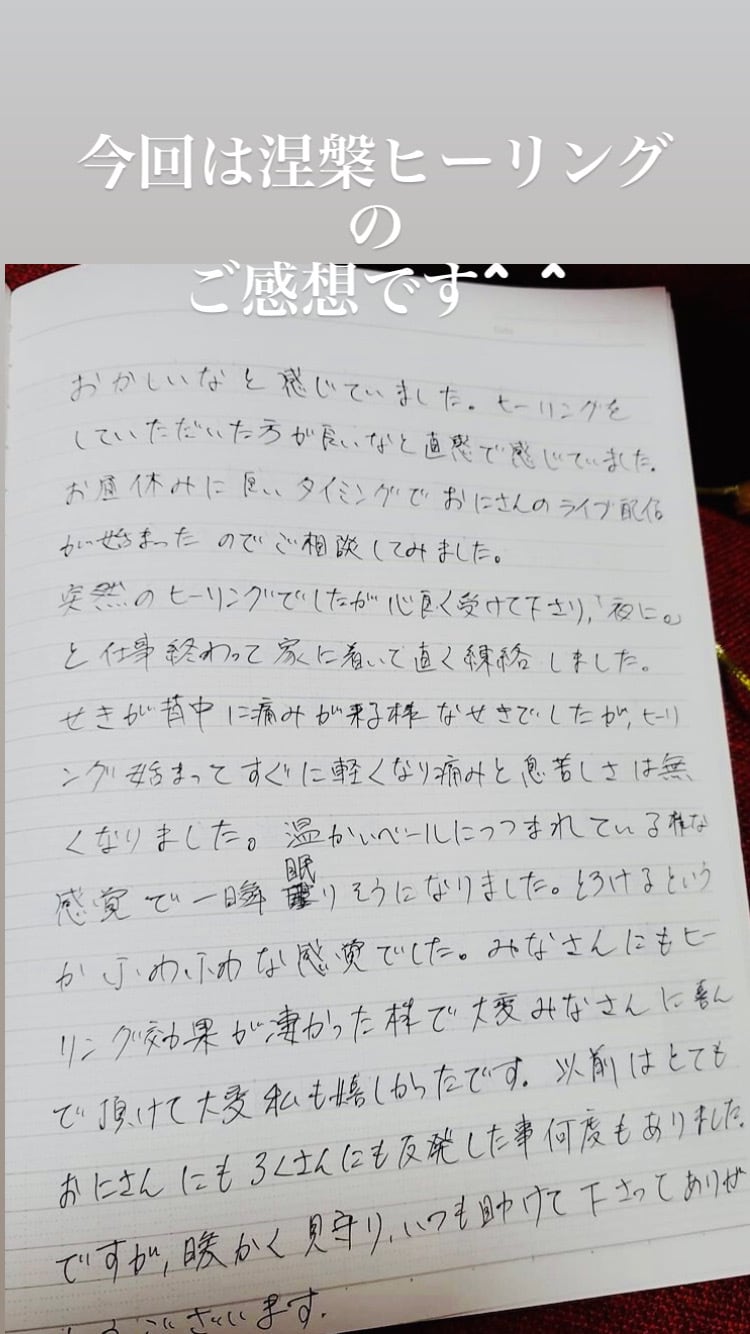 今回は涅槃ヒーリング
の
ご感想です^ ^
おかしいなと感じていました。ヒーリングを
していただいた方が良いなと直感で感じていました。
お昼休みに良いタイミングでおにさんのライブ配信
が始まったのでご相談してみました。
突然のヒーリングでしたが心良く受けて下さり,「夜に。」
と仕事終わって家に着いて直く練絡しました。
せきが背中に痛みが来る様なせきでしたが,ヒーリ
ング始まってすぐに軽くなり痛みと息苦しさは無
くなりました。温かいベールにつつまれている様な
感覚で一瞬眠りそうになりました。とろけるという
かふわふわな感覚でした。みなさんにもヒー
リング効果が凄かった様で大変みなさんに喜ん
で頂けて大変私も嬉しかったです。以前はとても
おにさんにもろくさんにも反発した事何度もありました。
ですが,暖かく見守り,いつも助けて下さってありが
とうございます.